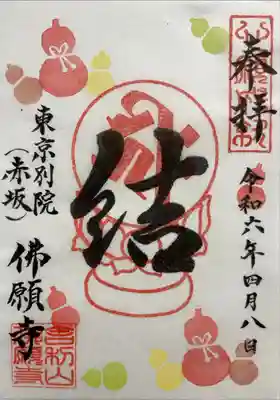 奉拝
令和六年四月八日
結
東京別院
（赤坂）
佛願寺